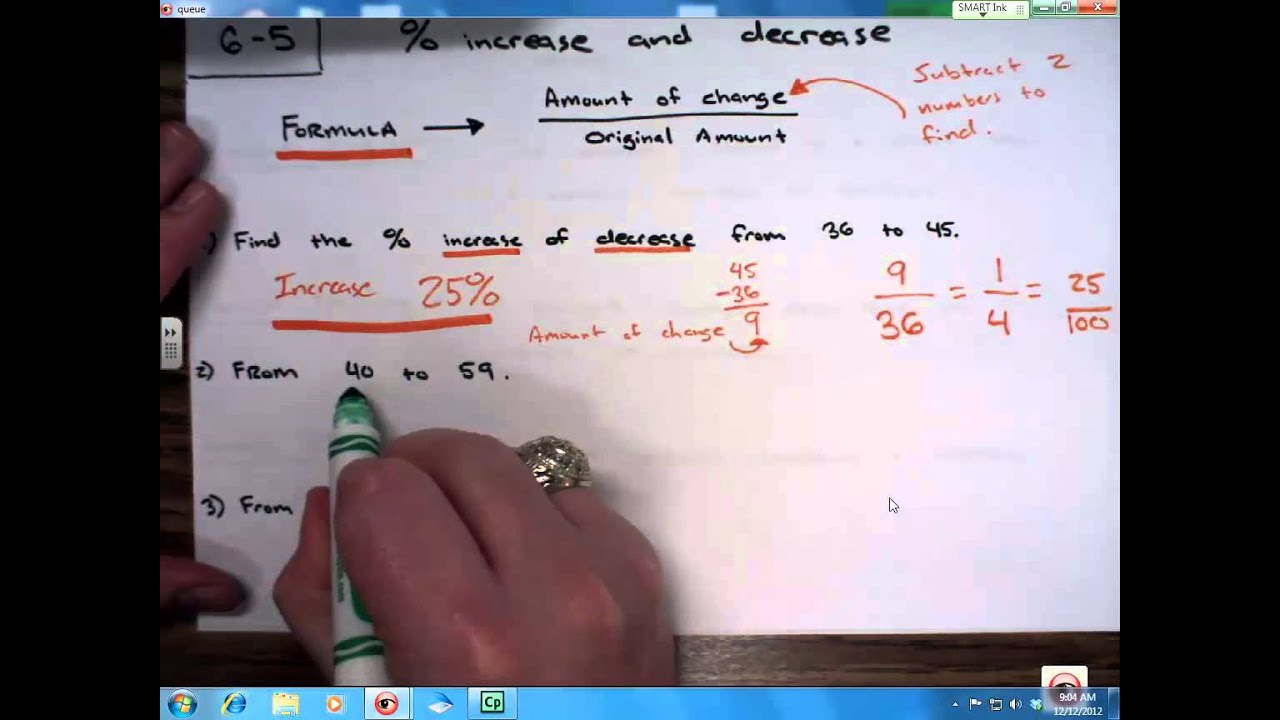 queue
SMART Ink
6-5 % increase and decrease
FORMULA → Amount of change
Original Amount
Subtract 2
numbers to
find.
) Find the % increase of decrease from 36 to 45.
Increase 25%
45
-36
9
Amount of change
9/36 = 1/4 = 25/100
2) From 40 to 59.
3) From
Cp
9:04 AM
12/12/2012